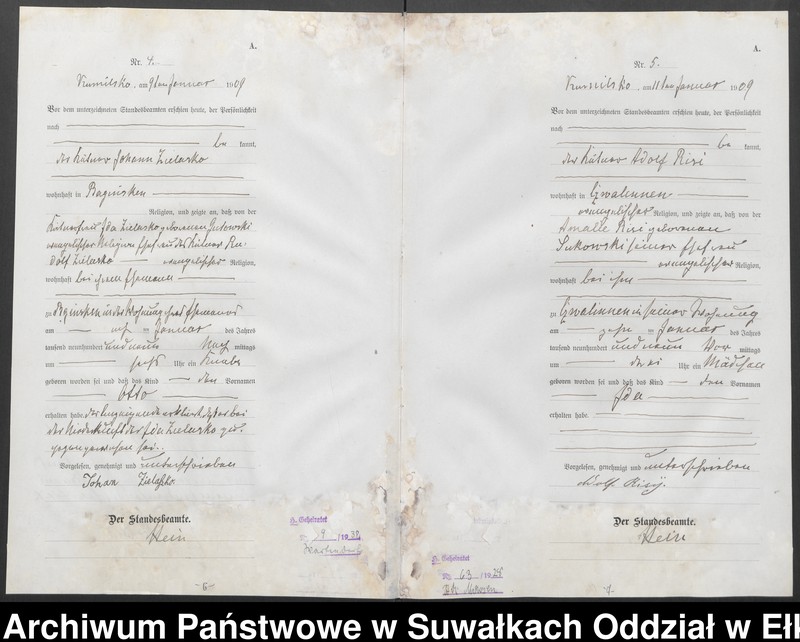 A.
Nr. 4.
Kumilsko, am 9ten Januar 1909
Vor dem unterzeichneten Standesbeamten erschien heute, der Persönlichkeit
nach
be kannt,
der Kätner Johann Zielasko
wohnhaft in Baginsken
Religion, und zeigte an, daß von der
Kätnerfrau Ida Zielasko geborenen Gutowski
evangelischer Religion Ehefrau des Kätner Ru-
dolf Zielasko evangelischer Religion,
wohnhaft bei ihrem Ehemann
zu Baginsken in der Wohnung ihres Ehemannes
am acht ten Januar des Jahres
tausend neunhundert und neun Nach mittags
um sechs Uhr ein Knabe
geboren worden sei und daß das Kind den Vornamen
Otto
erhalten habe. der Anzeigende erklärt, daß er bei
der Niederkunft der Ida Zielasko zu-
gegen gewesen sei.
Vorgelesen, genehmigt und unterschrieben
Johan Zielasko
Der Standesbeamte.
Hein
H. Geheiratet
9 /1932
-6-
A.
Nr. 5.
Kumilsko, am 11ten Januar 1909
Vor dem unterzeichneten Standesbeamten erschien heute, der Persönlichkeit
nach
be kannt,
der Kätner Adolf Risi
wohnhaft in Gwalinnen
evangelischer Religion, und zeigte an, daß von der
Amalie Risi geborenen
Sukowski seiner Ehefrau
evangelischer Religion,
wohnhaft bei ihm
zu Gwalinnen in seiner Wohnung
am zehn ten Januar des Jahres
tausend neunhundert und neun Vor mittags
um drei Uhr ein Mädchen
geboren worden sei und daß das Kind den Vornamen
Ida
erhalten habe.
Vorgelesen, genehmigt und unterschrieben
Adolf Risy.
Der Standesbeamte.
Hein
H. Geheiratet
Nr. 63 /1928
-7-
Archiwum Państwowe w Suwałkach Oddział w Eł